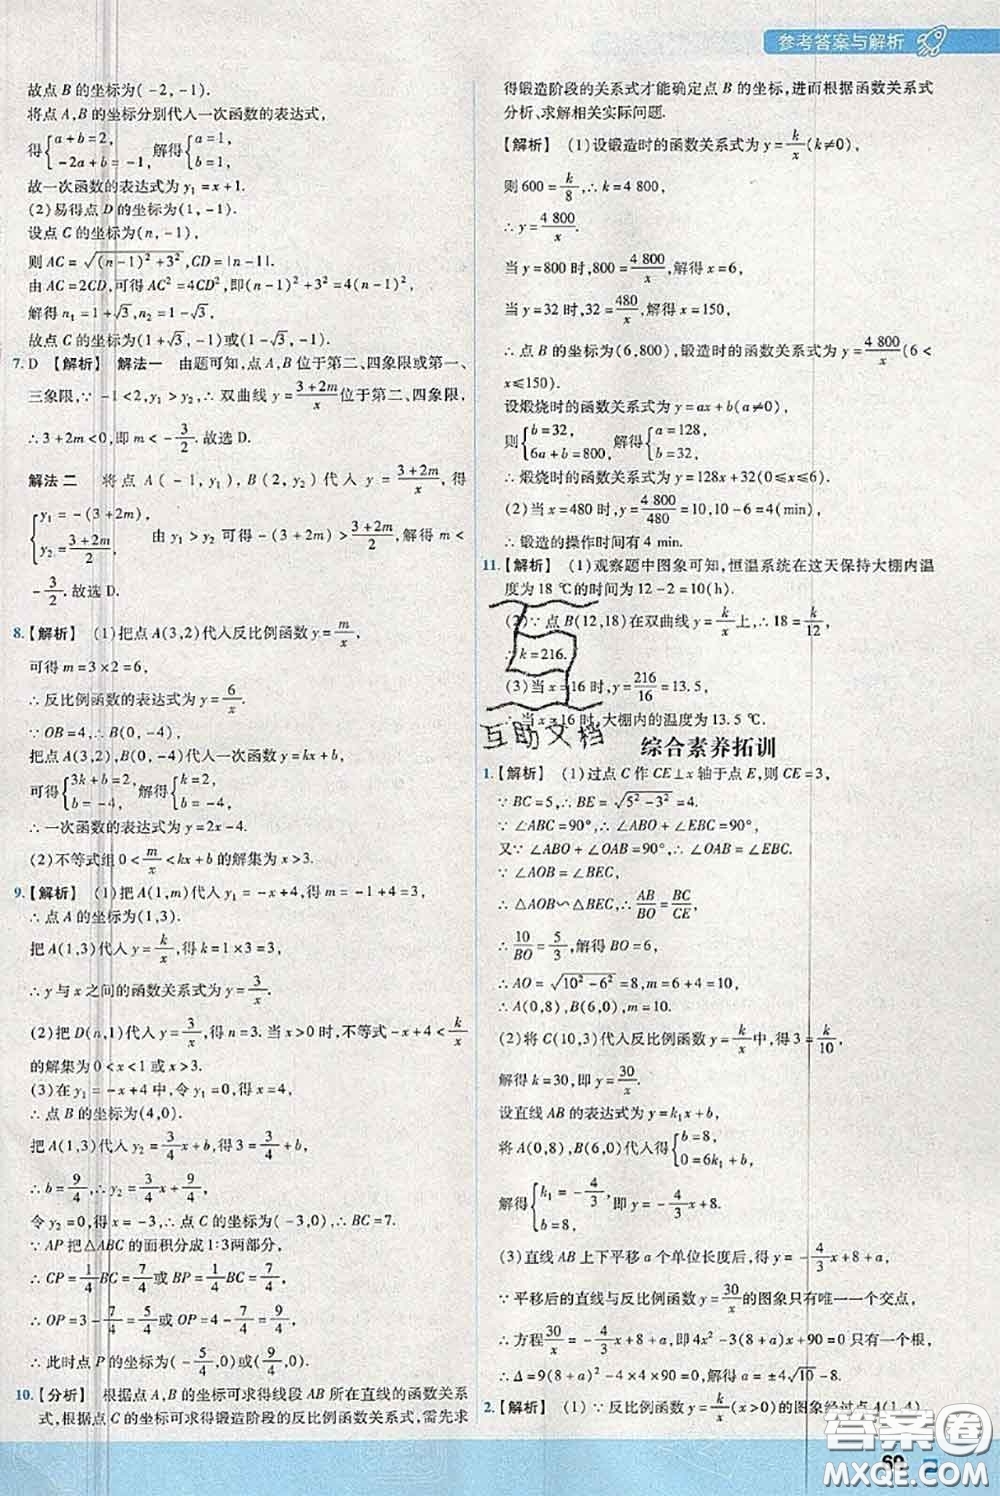 参考答案与解析
故点 B 的坐标为(-2, -1).
将点 A,B 的坐标分别代入一次函数的表达式,
得{a+b=2, -2a+b=-1, 解得{a=1, b=1.
故一次函数的表达式为 y₁=x+1.
(2)易得点 D 的坐标为(1, -1).
设点 C 的坐标为(n, -1),
则 AC=√((n-1)²+3²),CD=|n-1|.
由 AC=2CD,可得 AC²=4CD²,即(n-1)²+3²=4(n-1)²,
解得 n₁=1+√3,n₂=1-√3,
故点 C 的坐标为(1+√3, -1)或(1-√3, -1).
7. D 【解析】 解法一 由题可知,点 A,B 位于第二、四象限或第一、
三象限,∵ -1<2,y₁>y₂,∴ 双曲线 y=(3+2m)/x 位于第二、四象限,
∴ 3+2m<0,即 m<-3/2. 故选 D.
解法二 将点 A(-1,y₁),B(2,y₂)代入 y=(3+2m)/x,得
{y₁=-(3+2m), y₂=(3+2m)/2, 由 y₁>y₂,可得-(3+2m)>(3+2m)/2,解得 m<
-3/2. 故选 D.
8.【解析】 (1)把点 A(3,2)代入反比例函数 y=m/x,
可得 m=3×2=6,
∴ 反比例函数的表达式为 y=6/x.
∵ OB=4,∴ B(0,-4).
把点 A(3,2),B(0,-4)代入一次函数 y=kx+b,
可得{3k+b=2, b=-4, 解得{k=2, b=-4,
∴ 一次函数的表达式为 y=2x-4.
(2)不等式组 0<m/x<kx+b 的解集为 x>3.
9.【解析】 (1)把 A(1,m)代入 y₁=-x+4,得 m=-1+4=3,
∴ 点 A 的坐标为(1,3).
把 A(1,3)代入 y=k/x,得 k=1×3=3,
∴ y 与 x 之间的函数关系式为 y=3/x.
(2)把 D(n,1)代入 y=3/x,得 n=3. 当 x>0 时,不等式 -x+4<k/x
的解集为 0<x<1 或 x>3.
(3)在 y₁=-x+4 中,令 y₁=0,则 x=4,
∴ 点 B 的坐标为(4,0).
把 A(1,3)代入 y₂=3/4x+b,得 3=3/4+b,
∴ b=9/4,∴ y₂=3/4x+9/4.
令 y₂=0,得 x=-3,∴ 点 C 的坐标为(-3,0),∴ BC=7.
∵ AP 把△ABC 的面积分成 1:3两部分,
∴ CP=1/4BC=7/4或 BP=1/4BC=7/4,
∴ OP=3-7/4=5/4或 OP=4-7/4=9/4,
∴ 此时点 P 的坐标为(-5/4,0)或(9/4,0).
10.【分析】 根据点 A,B 的坐标可求得线段 AB 所在直线的函数关系
式,根据点 C 的坐标可求得锻造阶段的反比例函数关系式,需先求
得锻造阶段的关系式才能确定点 B 的坐标,进而根据函数关系式
分析、求解相关实际问题.
【解析】 (1)设锻造时的函数关系式为 y=k/x(k≠0),
则 600=k/8,∴ k=4 800,
∴ y=4 800/x.
当 y=800 时,800=4 800/x,解得 x=6,
当 y=32 时,32=480/x,解得 x=150,
∴ 点 B 的坐标为(6,800),锻造时的函数关系式为 y=4 800/x(6<
x≤150).
设煅烧时的函数关系式为 y=ax+b(a≠0),
则{b=32, 6a+b=800, 解得{a=128, b=32,
∴ 煅烧时的函数关系式为 y=128x+32(0≤x≤6).
(2)当 x=480 时,y=4 800/480=10,10-6=4(min),
∴ 锻造的操作时间有 4 min.
11.【解析】 (1)观察题中图象可知,恒温系统在这天保持大棚内温
度为 18 ℃的时间为 12-2=10(h).
(2)∵ 点 B(12,18)在双曲线 y=k/x上,∴ 18=k/12,
∴ k=216.
(3)当 x=16 时,y=216/16=13.5,
∴ 当 x=16 时,大棚内的温度为 13.5 ℃.
互助文档
综合素养拓训
1.【解析】 (1)过点 C 作 CE⊥x 轴于点 E,则 CE=3,
∵ BC=5,∴ BE=√(5²-3²)=4.
∵ ∠ABC=90°,∴ ∠ABO+∠EBC=90°.
又∵ ∠ABO+∠OAB=90°,∴ ∠OAB=∠EBC.
∵ ∠AOB=∠BEC,
∴ △AOB∽△BEC,∴ AB/BO=BC/CE,
∴ 10/BO=5/3,解得 BO=6,
∴ AO=√(10²-6²)=8,m=6+4=10,
∴ A(0,8),B(6,0),m=10.
(2)将 C(10,3)代入反比例函数 y=k/x中,得 3=k/10,
解得 k=30,即 y=30/x.
设直线 AB 的表达式为 y=k₁x+b,
将 A(0,8),B(6,0)代入得{b=8, 0=6k₁+b,
解得{k₁=-4/3, b=8, 即 y=-4/3x+8.
(3)直线 AB 上下平移 a 个单位长度后,得 y=-4/3x+8+a,
∵ 平移后的直线与反比例函数 y=30/x的图象只有唯一一个交点,
∴ 方程30/x=-4/3x+8+a,即 4x²-3(8+a)x+90=0 只有一个根,
∴ Δ=9(8+a)²-4×4×90=0,解得 a=±4√10-8.
2.【解析】 (1)∵ 反比例函数 y=k/x(x>0)的图象经过点 A(1,4),
60
答案圈
MXQE.COM